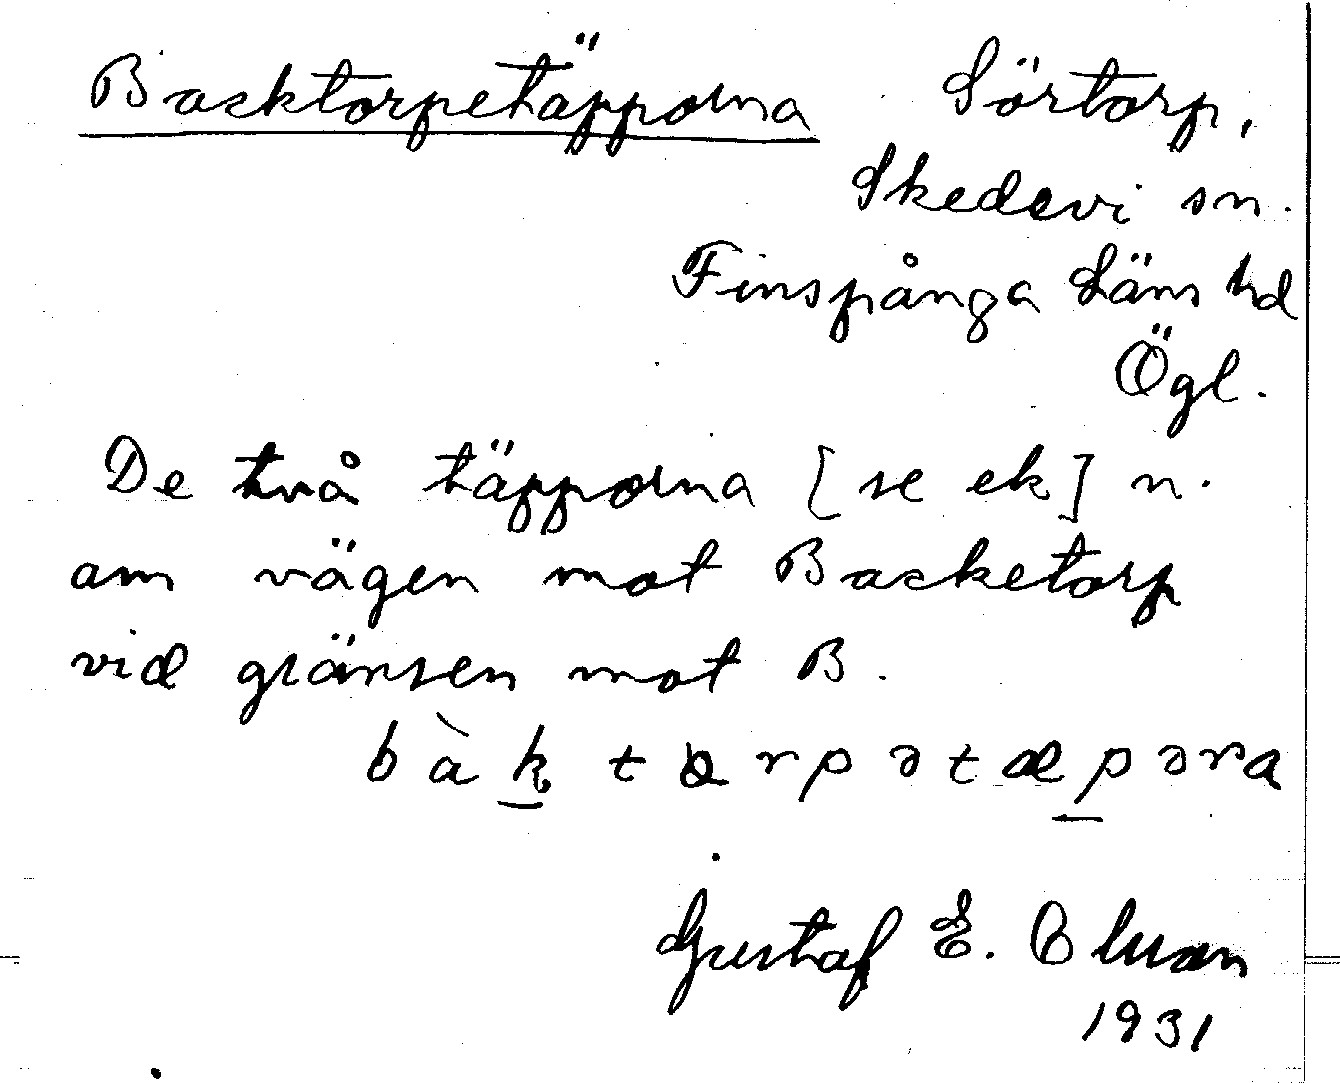 Backtorpetäpporna Sörtorp,
Skedevi sn.
Finspånga Läns hd
Ögl.
De två täpporna [se ek] n.
om vägen mot Backetorp
vid gränsen mot B.
bàk tɷrpətæpəra
Gustaf E.
1931